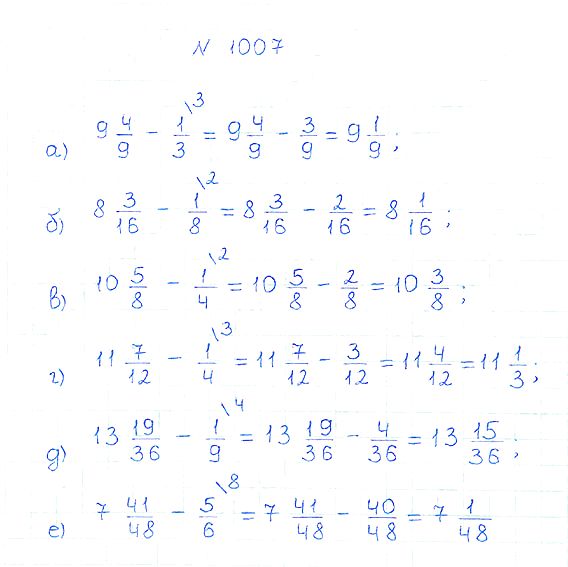 N 1007
а) 9 4/9 - 1/3 \3 = 9 4/9 - 3/9 = 9 1/9 ;
б) 8 3/16 - 1/8 \2 = 8 3/16 - 2/16 = 8 1/16 ;
в) 10 5/8 - 1/4 \2 = 10 5/8 - 2/8 = 10 3/8 ;
г) 11 7/12 - 1/4 \3 = 11 7/12 - 3/12 = 11 4/12 = 11 1/3 ;
д) 13 19/36 - 1/9 \4 = 13 19/36 - 4/36 = 13 15/36 ;
е) 7 41/48 - 5/6 \8 = 7 41/48 - 40/48 = 7 1/48